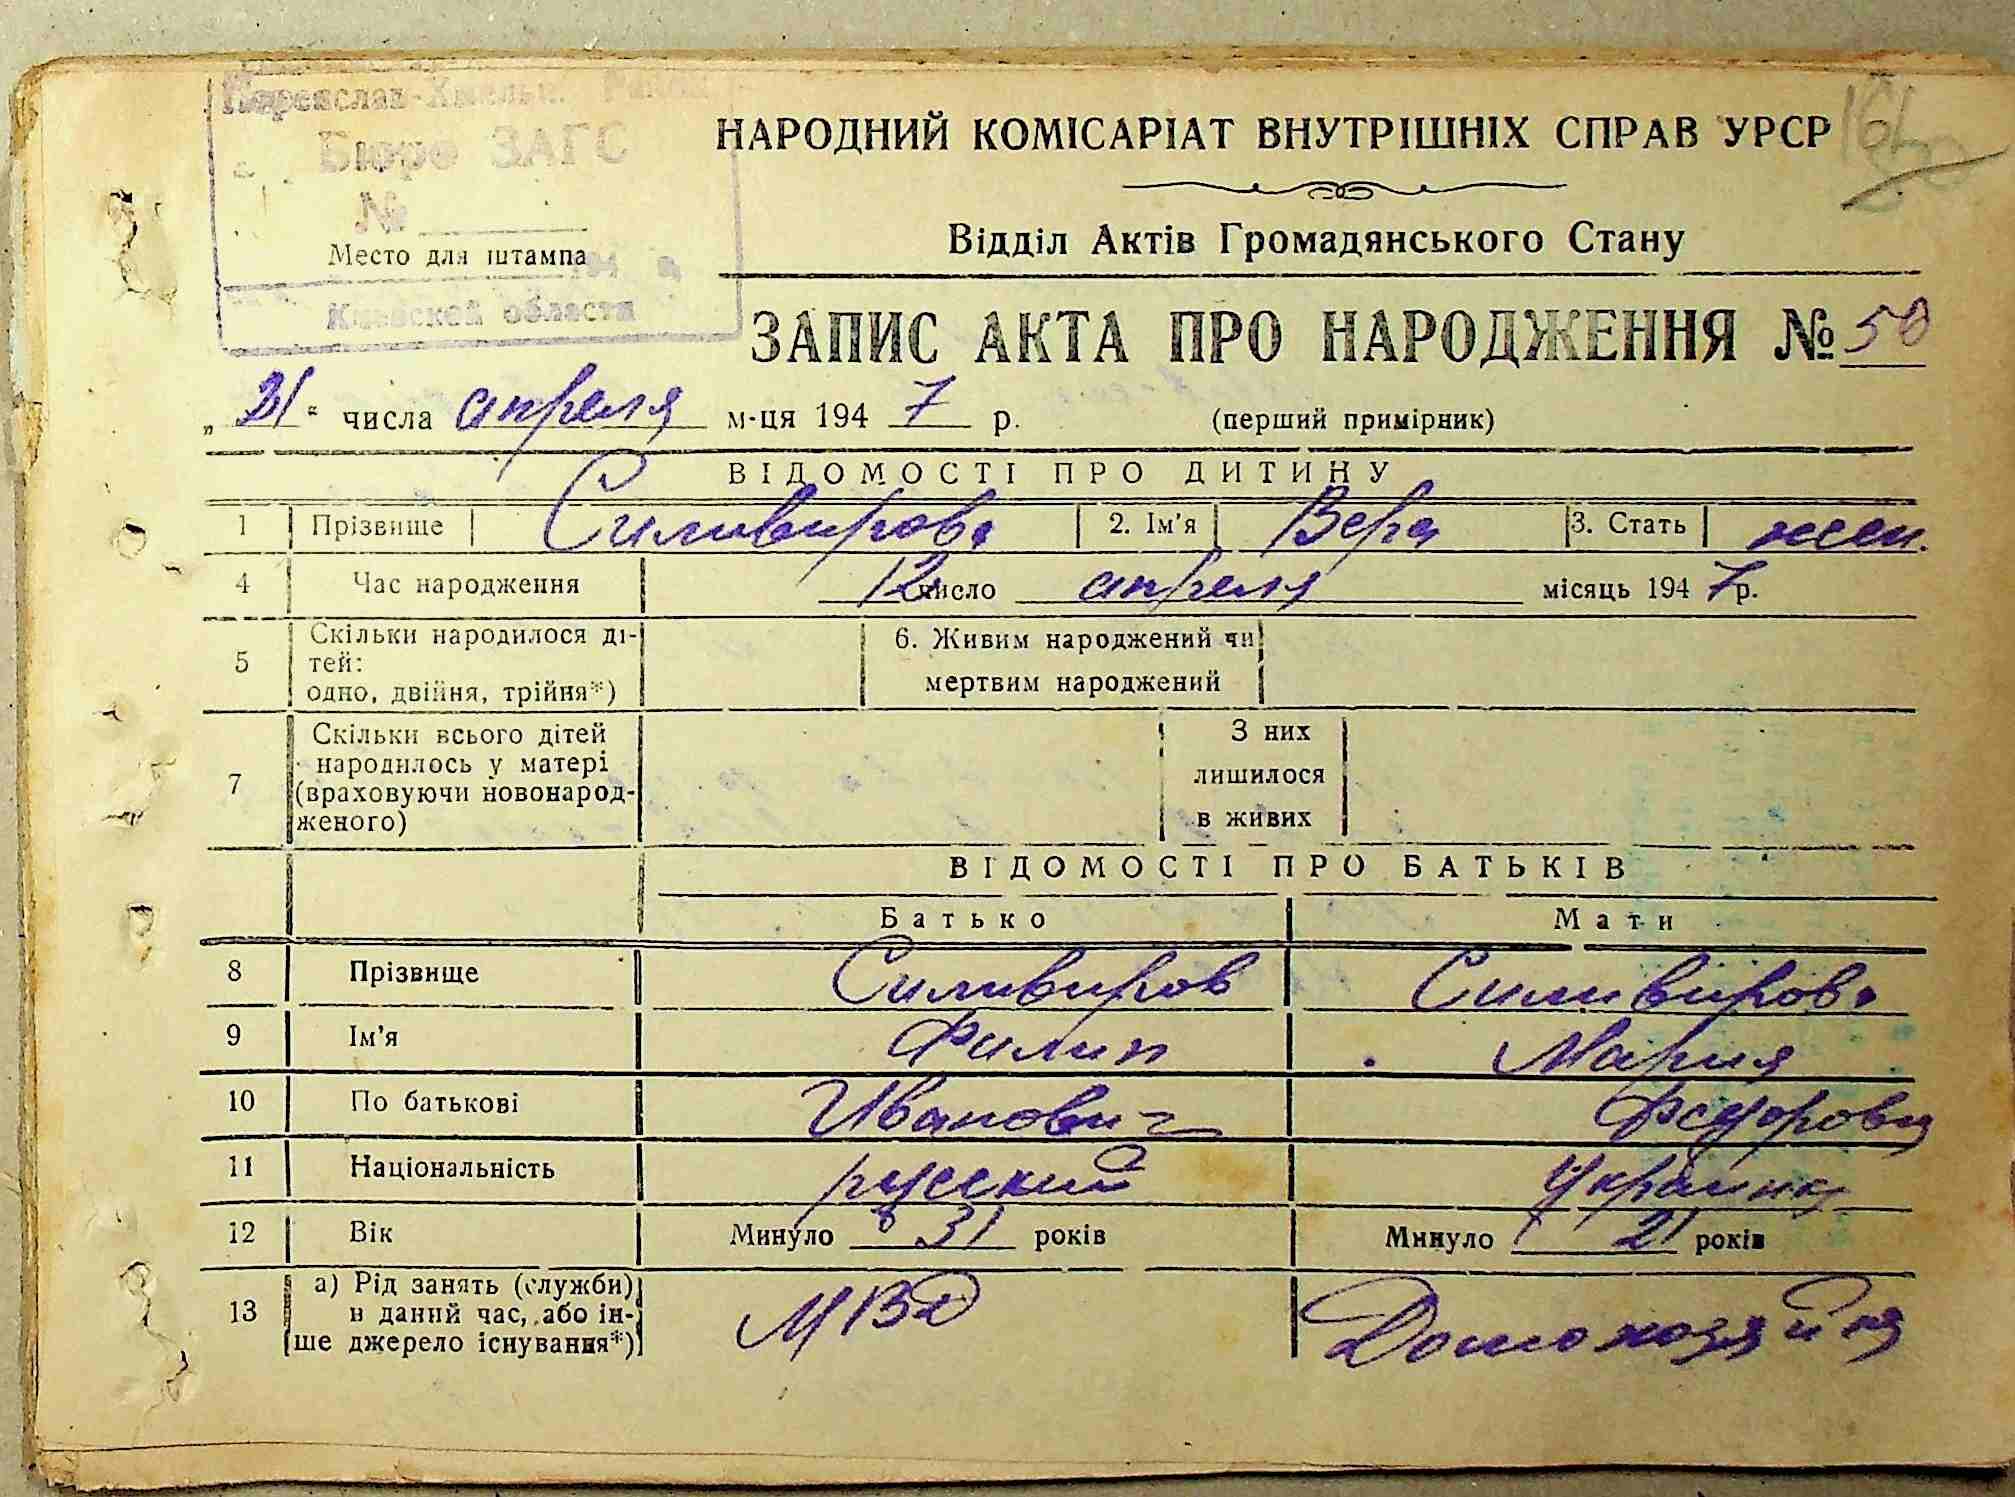 Переяслав-Хмельн. Район
Бюро ЗАГС
№
Место для штампа
194 г.
Киевской области
НАРОДНИЙ КОМІСАРІАТ ВНУТРІШНІХ СПРАВ УРСР
Відділ Актів Громадянського Стану
ЗАПИС АКТА ПРО НАРОДЖЕННЯ № 50
„21“ числа апреля м-ця 1947 р. (перший примірник)
ВІДОМОСТІ ПРО ДИТИНУ
1 Прізвище Силивирова 2. Ім'я Вера 3. Стать жен.
4 Час народження 12 число апреля місяць 1947 р.
5 Скільки народилося ді-
тей:
одно, двійня, трійня*)
6. Живим народжений чи
мертвим народжений
7 Скільки всього дітей
народилось у матері
(враховуючи новонарод-
женого)
З них
лишилося
в живих
ВІДОМОСТІ ПРО БАТЬКІВ
Батько Мати
8 Прізвище Силивиров Силивирова
9 Ім'я Филип Мария
10 По батькові Иванович Федоровна
11 Національність русский Украинка
12 Вік Минуло 31 років Минуло 21 років
13 а) Рід занять (служби)
в даний час, або ін-
ше джерело існування*)
МВД Домохозяйка